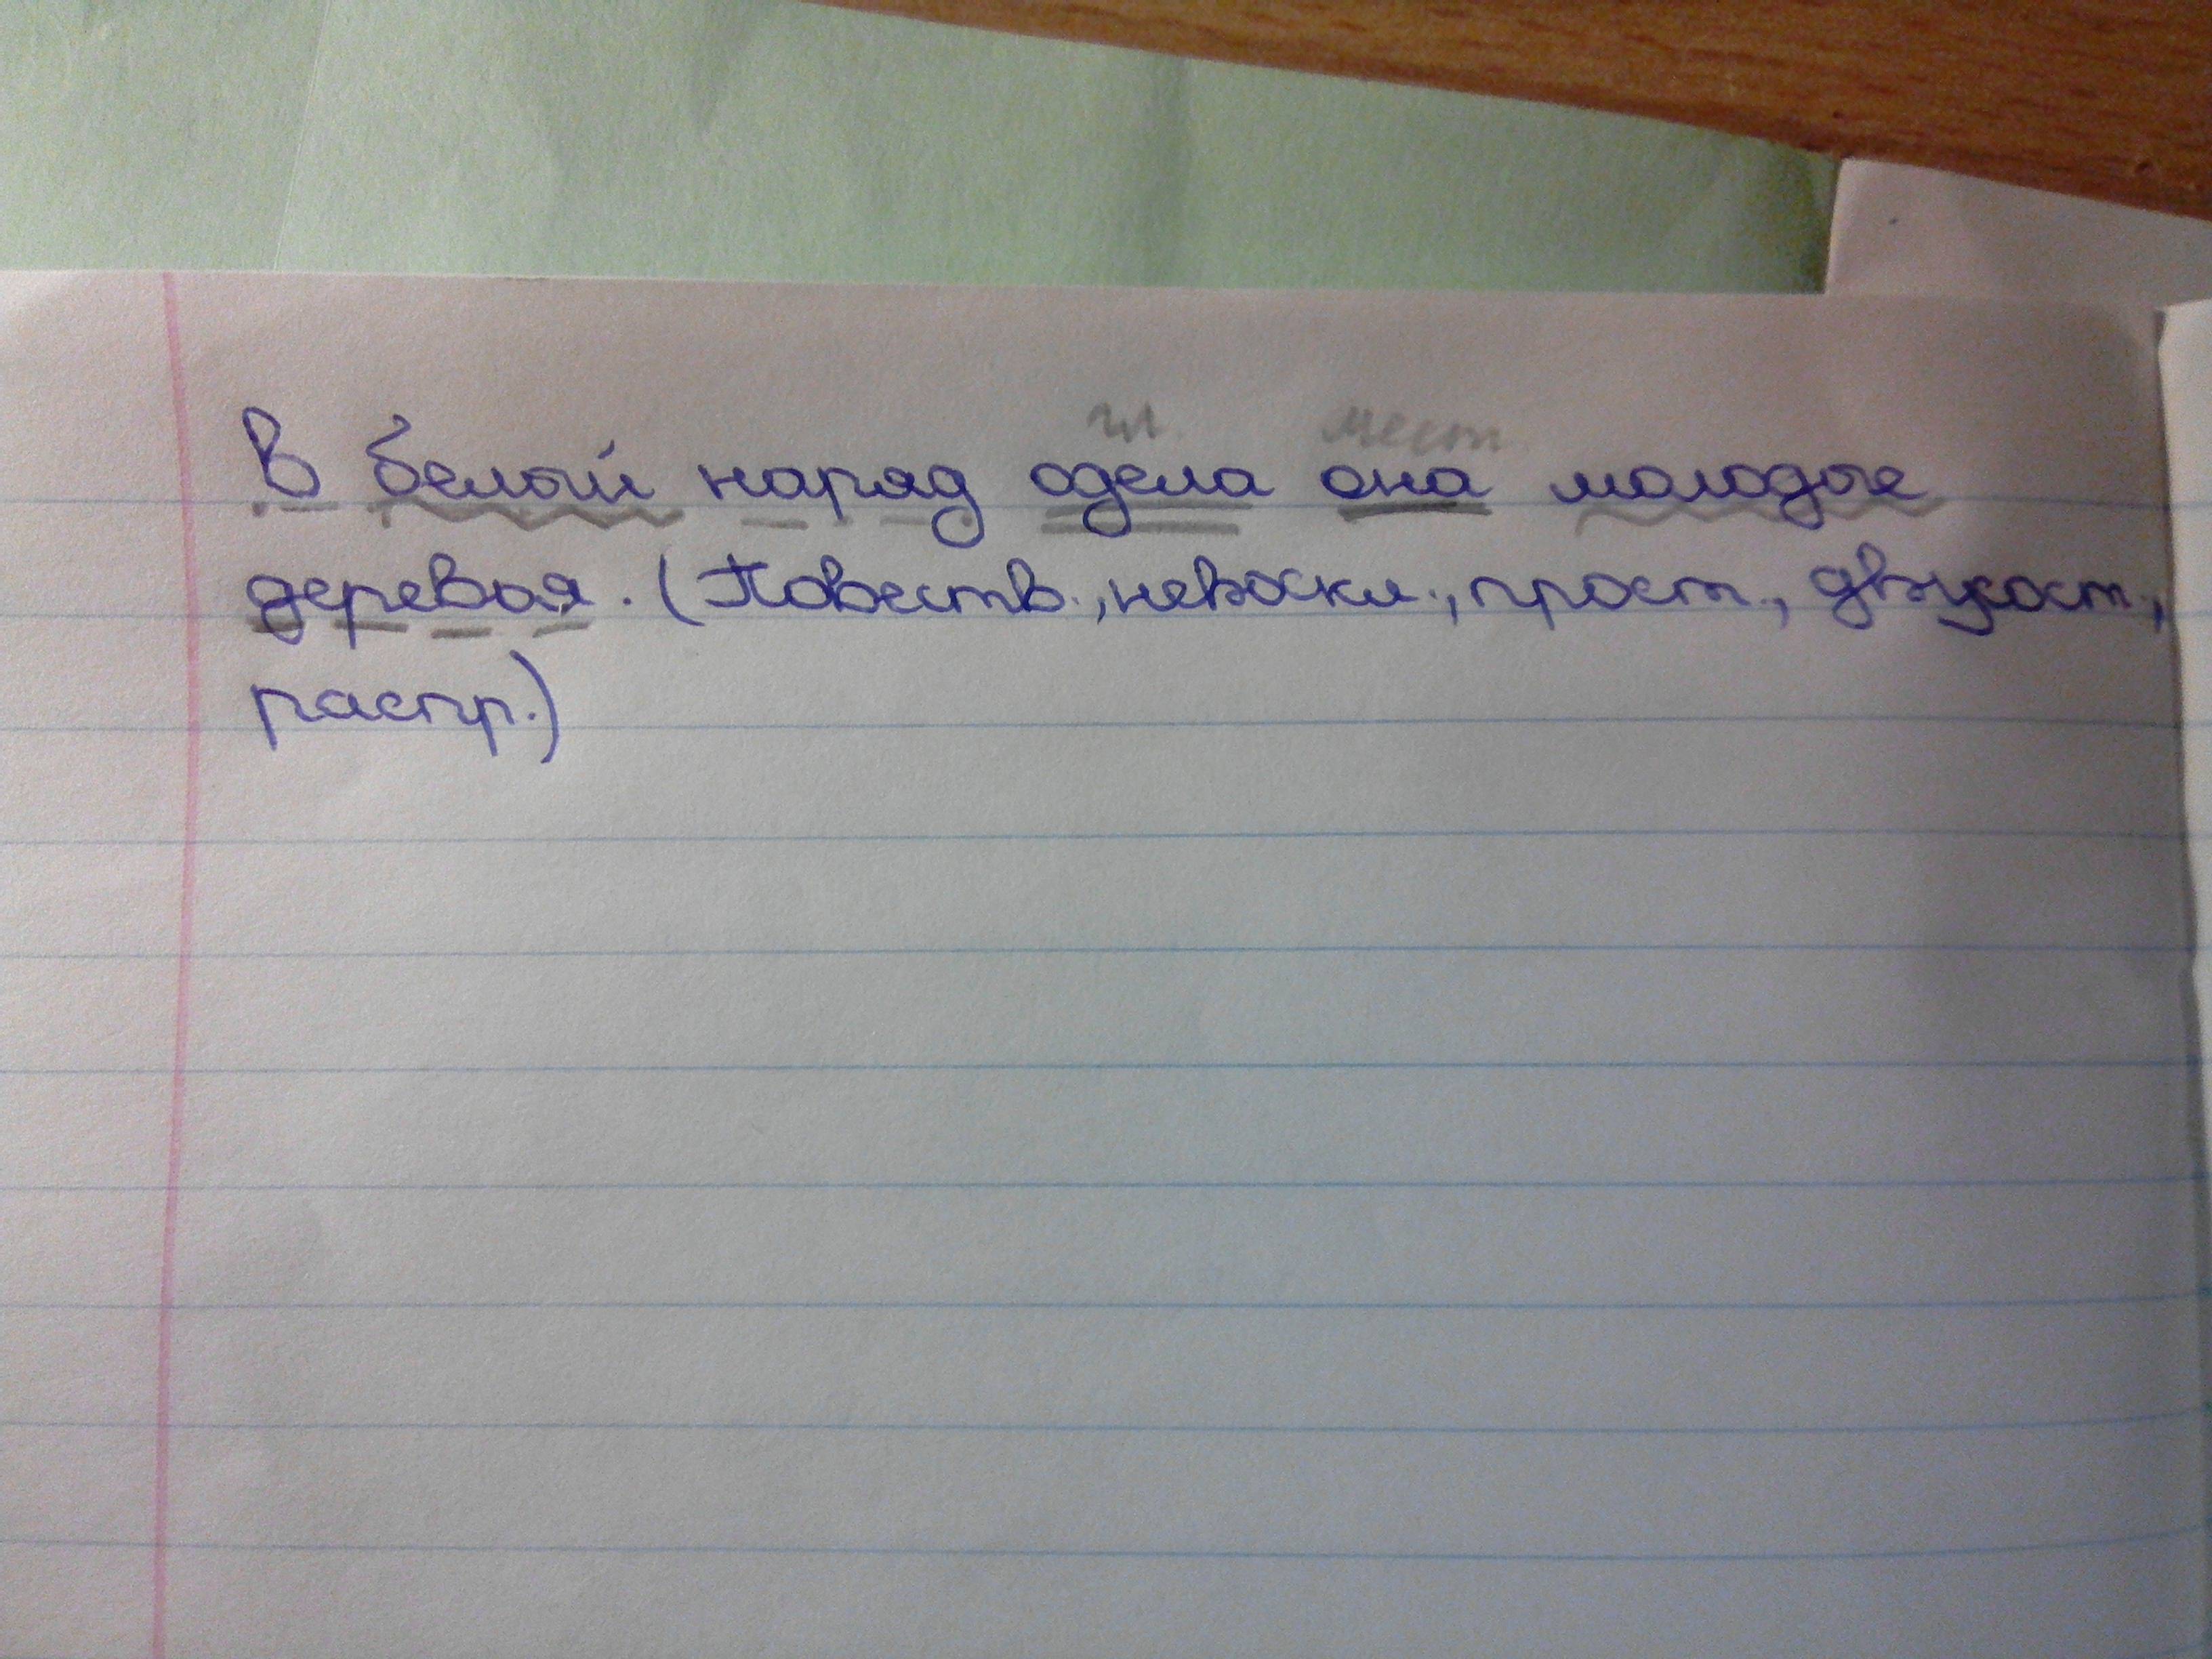 гл. мест.
В белый наряд одела она молодые
деревья. (Повеств., невоскл., прост., двусост.,
распр.)